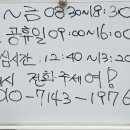 ~금 08:30~18:30
공휴일 09:00~16:00
심시간 12:40~13:20
시 전화주세여!
010-7143-1976